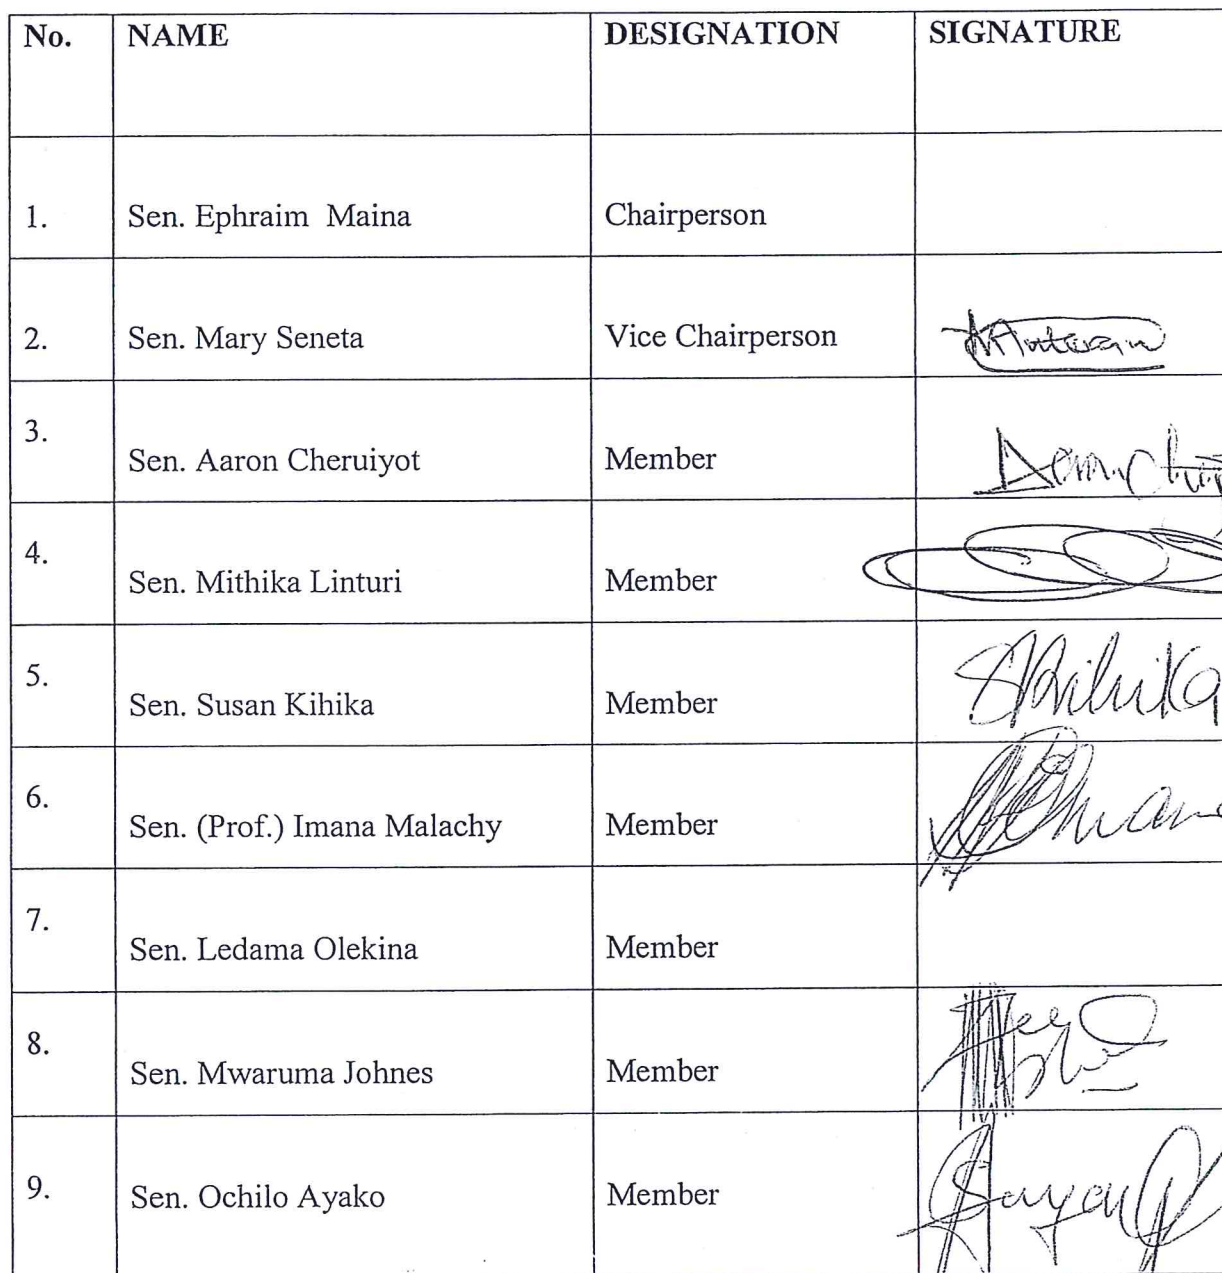 No. NAME DESIGNATION SIGNATURE
1. Sen. Ephraim Maina Chairperson
2. Sen. Mary Seneta Vice Chairperson
3. Sen. Aaron Cheruiyot Member
4. Sen. Mithika Linturi Member
5. Sen. Susan Kihika Member SKihika
6. Sen. (Prof.) Imana Malachy Member
7. Sen. Ledama Olekina Member
8. Sen. Mwaruma Johnes Member
9. Sen. Ochilo Ayako Member